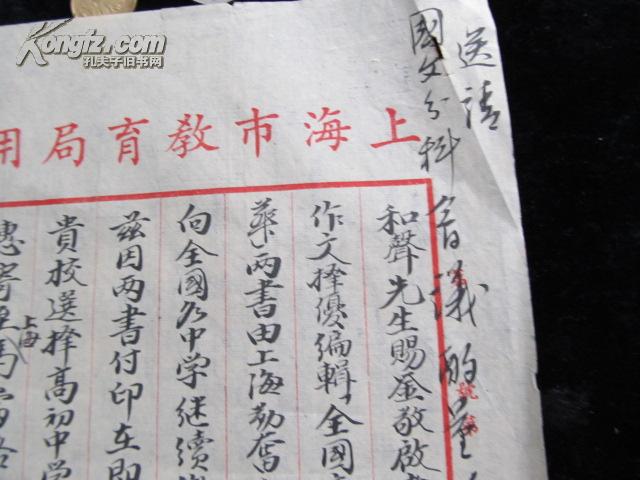 Kongfz.com
孔夫子旧书网
上海市教育局用
送請
國文分科會議酌量
號
和聲先生賜鉴敬啟
作文擇優编輯全國
華两書由上海勤奮
向全國各中学继续
兹因两書付印在即
貴校選擇高初中学
惠寄至
上海